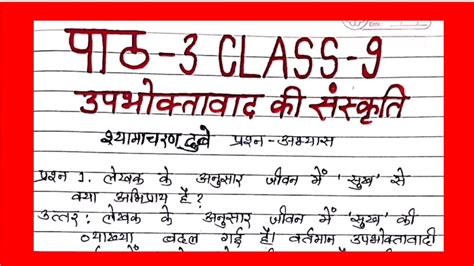 पाठ-3 CLASS-9
उपभोक्तावाद की संस्कृति
श्यामाचरण दुबे प्रश्न-अभ्यास
प्रश्न 1. लेखक के अनुसार जीवन में 'सुख' से
क्या अभिप्राय है ?
उत्तर : लेखक के अनुसार जीवन में 'सुख' की
व्याख्या बदल गई है। वर्तमान उपभोक्तावादी